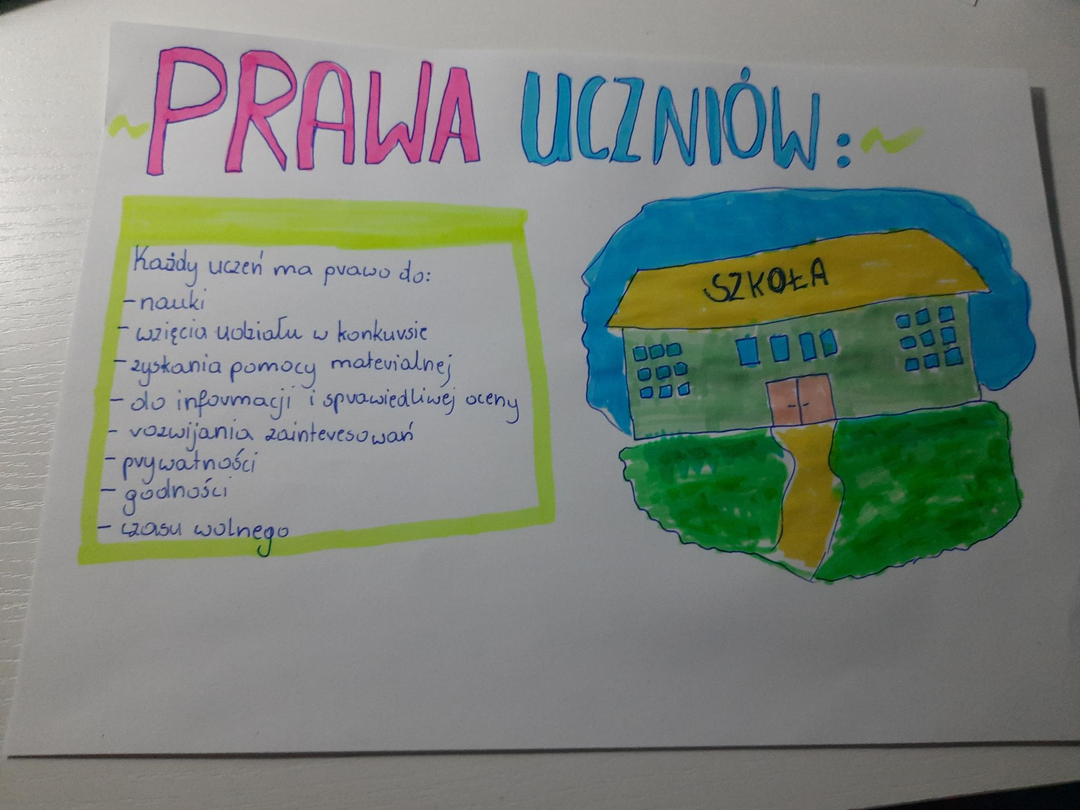 PRAWA UCZNIÓW:
Każdy uczeń ma prawo do:
- nauki
- wzięcia udziału w konkursie
- zyskania pomocy materialnej
- do informacji i sprawiedliwej oceny
- rozwijania zainteresowań
- prywatności
- godności
- czasu wolnego
SZKOŁA